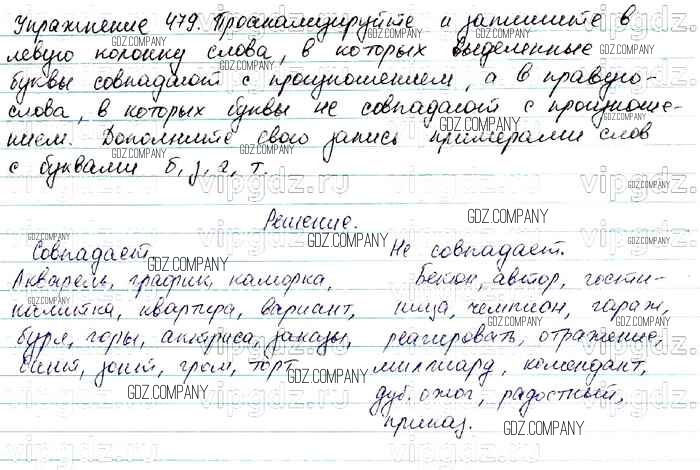 Упражнение 479. Проанализируйте и запишите в
левую колонку слова, в которых выделенные
буквы совпадают с произношением, а в правую-
слова, в которых буквы не совпадают с произноше-
нием. Дополните свою запись примерами слов
с буквами б, з, г, т.
Решение.
Совпадает
Акварель, график, каморка,
калитка, квартира, вариант,
буря, горы, актриса, заказы,
синий, зонт, гром, торт
Не совпадает.
Бекон, автор, гости-
ница, чемпион, гараж,
реагировать, отражение,
миллиард, комендант,
дуб. ожог, радостный,
приказ.
GDZ.COMPANY
vipgdz.ru